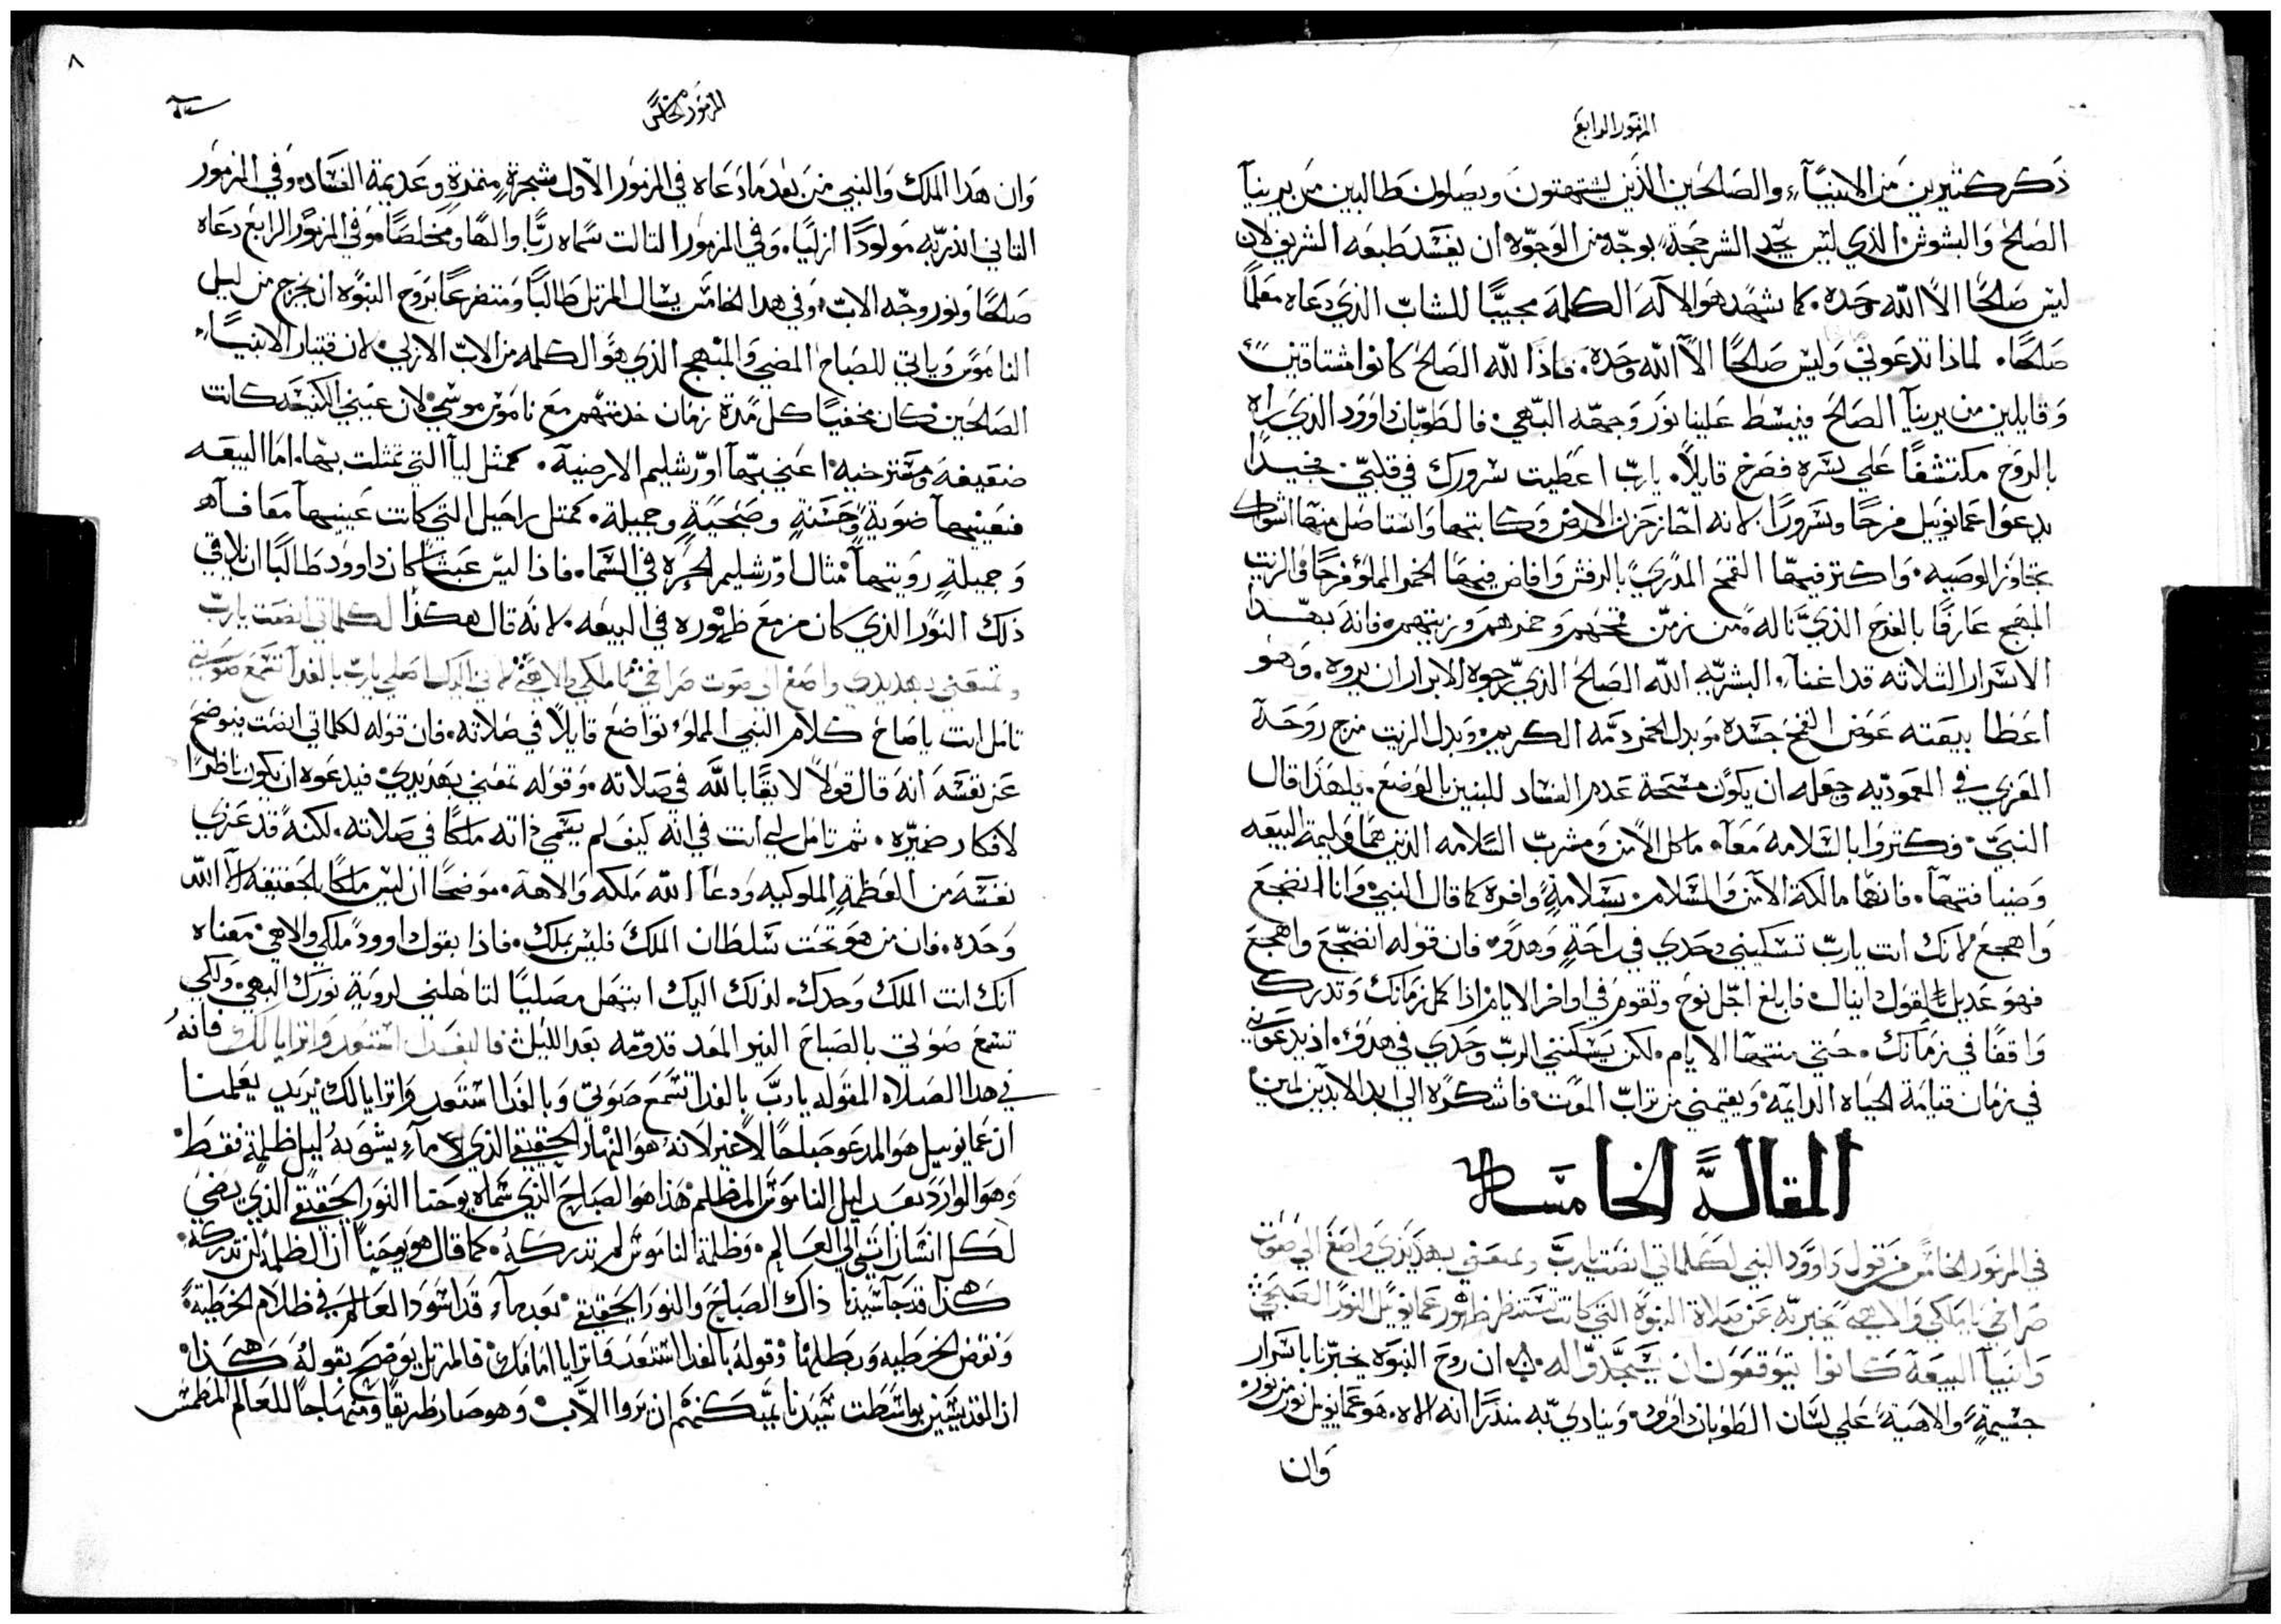 المزمور الرابع
ذكر كثيرين من الانبيآء والصالحين الذين يشتهون ويصلون طالبين من يرينا
الصلح والبشوش الذي ليس يجد الشر حجة بوجه من الوجوه ان يفسد طبعه الشريف لان
ليس صالحًا الا الله وحده كما شهد هو الاله الكلمة مجيبًا للشاب الذي دعاه معلمًا
صالحًا لماذا تدعوني وليس صالحًا الا الله وحده فاذًا لله الصالح كانوا مشتاقين
وقايلين من يرينا الصالح فينبسط علينا نور وجهه البهي فالطوبان داوود الذي راه
بالروح مكتشفًا علي بشره فصرخ قايلاً يارب اعطيت سرورك في قلبي مخيدًا
يدعوا عمانوييل فرحًا وسرورًا لانه احاز حزن الارض وكابتها واستاصل منها اشواك
تجاوز الوصيه واكتنز فيها القمح المذري بالرفش وافاض فيها الخمر المملؤ فرحًا والزيت
المبهج عارفًا بالفرح الذي ناله من زمن قمحهم وخمرهم وزيتهم فانه بهذا
الاسرار الثلاثه قد اغنآ البشريه الله الصالح الذي يرجوه الابرار ان يروه وهو
اعطا بيعته عوض القمح جسده وبدل الخمر دمه الكريم وبدل الزيت مزج روحه
المعزي في المعموديه وجعله ان يكون مسحة عدم الفساد للبنين بالوضع لهذا قال
النبي فكثروا بالسلامه معآ ماكل الامن ومشرب السلامه الذين هما وليمة البيعه
وضيافتها فانها مالكة الامن والسلام بسلامةٍ وافره كما قال النبي وانا انضجع
واهجع لانك انت يارب تسكيني وحدي في راحةٍ وهدو فان قوله انضجع واهجع
فهو عديل لقول ايناك فابلغ اجل نوح وتقوم في اواخر الايام اذا كمل زمانك وتدرك
واقفًا في زمانك حتي منتها الايام لكن يسكنني الرب وحدي في هدؤ اذ يدعوني
في زمان قيامة الحياه الدايمه ويقيمني من تراب الموت فاشكره الي ابد الابدين امين
المقالة الخامسة
في المزمور الخامس من قول داوود النبي لكلماتي انصت يارب وتمعني بهذيذي واصغ الي صوت
صراخي يا ملكي والاهي يخبر به عن صلاة النبوة التي كانت تستنظر ظهور عمانوييل النور الصبحي
وانبيآ البيعة كانوا يتوقعون ان يسجدوا له ان روح النبوه يخبرنا باسرار
جسيمةٍ والاهيةٍ علي لسان الطوبان داوود وينادي به منذرًا انه الاه هو عمانوييل نور من نور
وان
المزمور الخامس
٨
وان هذا الملك والنبي من بعد ما دعاه في المزمور الاول شجرةٍ مثمرةٍ وعديمة الفساد وفي المزمور
الثاني انذر به مولودًا ازليًا وفي المزمور الثالث سماه ربًا والهًا ومخلصًا وفي المزمور الرابع دعاه
صالحًا ونور وجه الاب وفي هذا الخامس يسال المرتل طالبًا ومتضرعًا بروح النبوه ان يخرج من ليل
الناموس وياتي للصباح المضي والمبهج الذي هو الكلمه من الاب الازلي لان قتبار الانبيآء
الصالحين كان مخفيًا كل مدة زمان خدمتهم مع ناموس موسي لان عيني الكنيسة كانت
ضعيفه ومتترخيه اعني بها اورشليم الارضية كمثل ليآ التي تمثلت بها اما البيعه
فعينيها ضويةٍ وحسنةٍ وصحيةٍ وجميلة كمثل راحيل التي كانت عينيها معافآه
وجميلةٍ رويتها مثال اورشليم الحره في السما فاذا ليس عبثًا كان داوود طالبًا ان يلاقي
ذلك النور الذي كان مزمع ظهوره في البيعه لانه قال هكذا لكلماتي انصت يارب
وتمعني بهذيذي واصغ الي صوت صراخي يا ملكي والاهي لاني اليك اصلي يارب بالغداة تسمع صوتي
تامل انت ياصاح كلام النبي المملؤ تواضع قايلاً في صلاته فان قوله لكلماتي انصت يوضح
عن نفسه انه قال قولاً لايقًا بالله في صلاته وقوله تمعني بهذيذي فيدعوه ان يكون ناظرًا
لافكار ضميره ثم تامل لي انت في انه كيف لم يسمي ذاته ملكًا في صلاته لكنه قد عري
نفسه من العظمة الملوكيه ودعا الله ملكه والاهه موضحًا ان ليس ملكًا بالحقيقه الا الله
وحده فان من هو تحت سلطان الملك فليس بملك فاذا بقول داوود ملكي والاهي معناه
انك انت الملك وحدك لذلك اليك ابتهل مصليًا لتاهلني لروية نورك البهي ولكي
تسمع صوتي بالصباح النير المعد قدومه بعد الليل فالبغداة استعد واترايا لك فانه
في هذا الصلاه المقوله يارب بالغداة تسمع صوتي وبالغداة استعد واترايا لك يريد يعلمنا
ان عمانوييل هو المدعو صباحًا لاغير لانه هو النهار الحقيقي الذي لا مآء يشوبه ليل ظلمة فقط
وهو الوارد بعد ليل الناموس المظلم هذا هو الصباح الذي سماه يوحنا النور الحقيقي الذي يضي
لكل انسان اتي الي العالم وظلمة الناموس لم تدركه كما قال هو يوحنا ان الظلمة لن تدركه
هكذا قد جآ سيدنا ذاك الصباح والنور الحقيقي بعد مآء قد اسود العالم في ظلام الخطية
ونقض الخطيه وبطلها وقوله بالغداة استعد واترايا امامك فالمرتل يوضح بقوله هكذا
ان القديسين بواسطت سيدنا يمكنهم ان يروا الآب وهو صار طريقًا ومنهاجًا للعالم المطمس